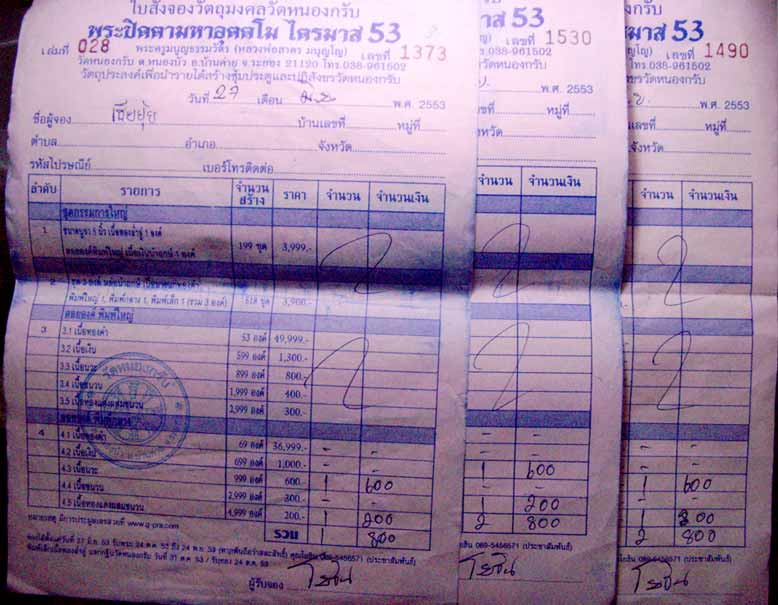 ใบสั่งจองวัตถุมงคลวัดหนองกรับ
พระปิดตามหาอุตตโม ไตรมาส 53
เล่มที่ 028 พระครูมนูญธรรมวัตร (หลวงพ่อสาคร มนุญโญ) เลขที่ 1373
วัดหนองกรับ ต.หนองบัว อ.บ้านค่าย จ.ระยอง 21120 โทร.038-961502
วัตถุประสงค์เพื่อนำรายได้สร้างซุ้มประตูและปฏิสังขรวัดหนองกรับ
วันที่ 27 เดือน มิ.ย. พ.ศ. 2553
ชื่อผู้จอง บ้านเลขที่ หมู่ที่
ตำบล อำเภอ จังหวัด
รหัสไปรษณีย์ เบอร์โทรติดต่อ
ลำดับ รายการ จำนวนสร้าง ราคา จำนวน จำนวนเงิน
ชุดกรรมการใหญ่
1 199 ชุด 3,999.-
ลอยองค์พิมพ์ใหญ่ เนื้อเงินนำฤกษ์ 1 องค์
2 618 ชุด 3,900.-
พิมพ์ใหญ่ 1, พิมพ์กลาง 1, พิมพ์เล็ก 1 (รวม 3 องค์)
ลอยองค์ พิมพ์ใหญ่
3 3.1 เนื้อทองคำ 53 องค์ 49,999.-
3.2 เนื้อเงิน 599 องค์ 1,300.-
3.3 เนื้อนวะ 899 องค์ 800.-
3.4 เนื้อชนวน 1,999 องค์ 400.-
3.5 เนื้อทองแดงผสมชนวน 2,999 องค์ 300.-
ลอยองค์ พิมพ์กลาง
4 4.1 เนื้อทองคำ 69 องค์ 36,999.- - -
4.2 เนื้อเงิน 699 องค์ 1,000.- - -
4.3 เนื้อนวะ 999 องค์ 600.- 1 600
4.4 เนื้อชนวน 2,999 องค์ 300.- - -
4.5 เนื้อทองแดงผสมชนวน 4,999 องค์ 200.- 1 200
รวม 1 800
หมายเหตุ มีการประมูลเลขสวยที่ www.g-pra.com
ผู้รับจอง โยธิน
มาส 53
เลขที่ 1530
โทร.038-961502
ขรวัดหนองกรับ
พ.ศ. 2553
หมู่ที่
จำนวน จำนวนเงิน
- -
- -
1 600
- -
1 200
2 800
089-5456571 (ประชาสัมพันธ์)
โยธิน
าส 53
เลขที่ 1490
โทร.038-961502
พ.ศ. 2553
หมู่ที่
จังหวัด
จำนวน จำนวนเงิน
- -
- -
1 600
- -
1 200
2 800
089-5456571 (ประชาสัมพันธ์)
โยธิน